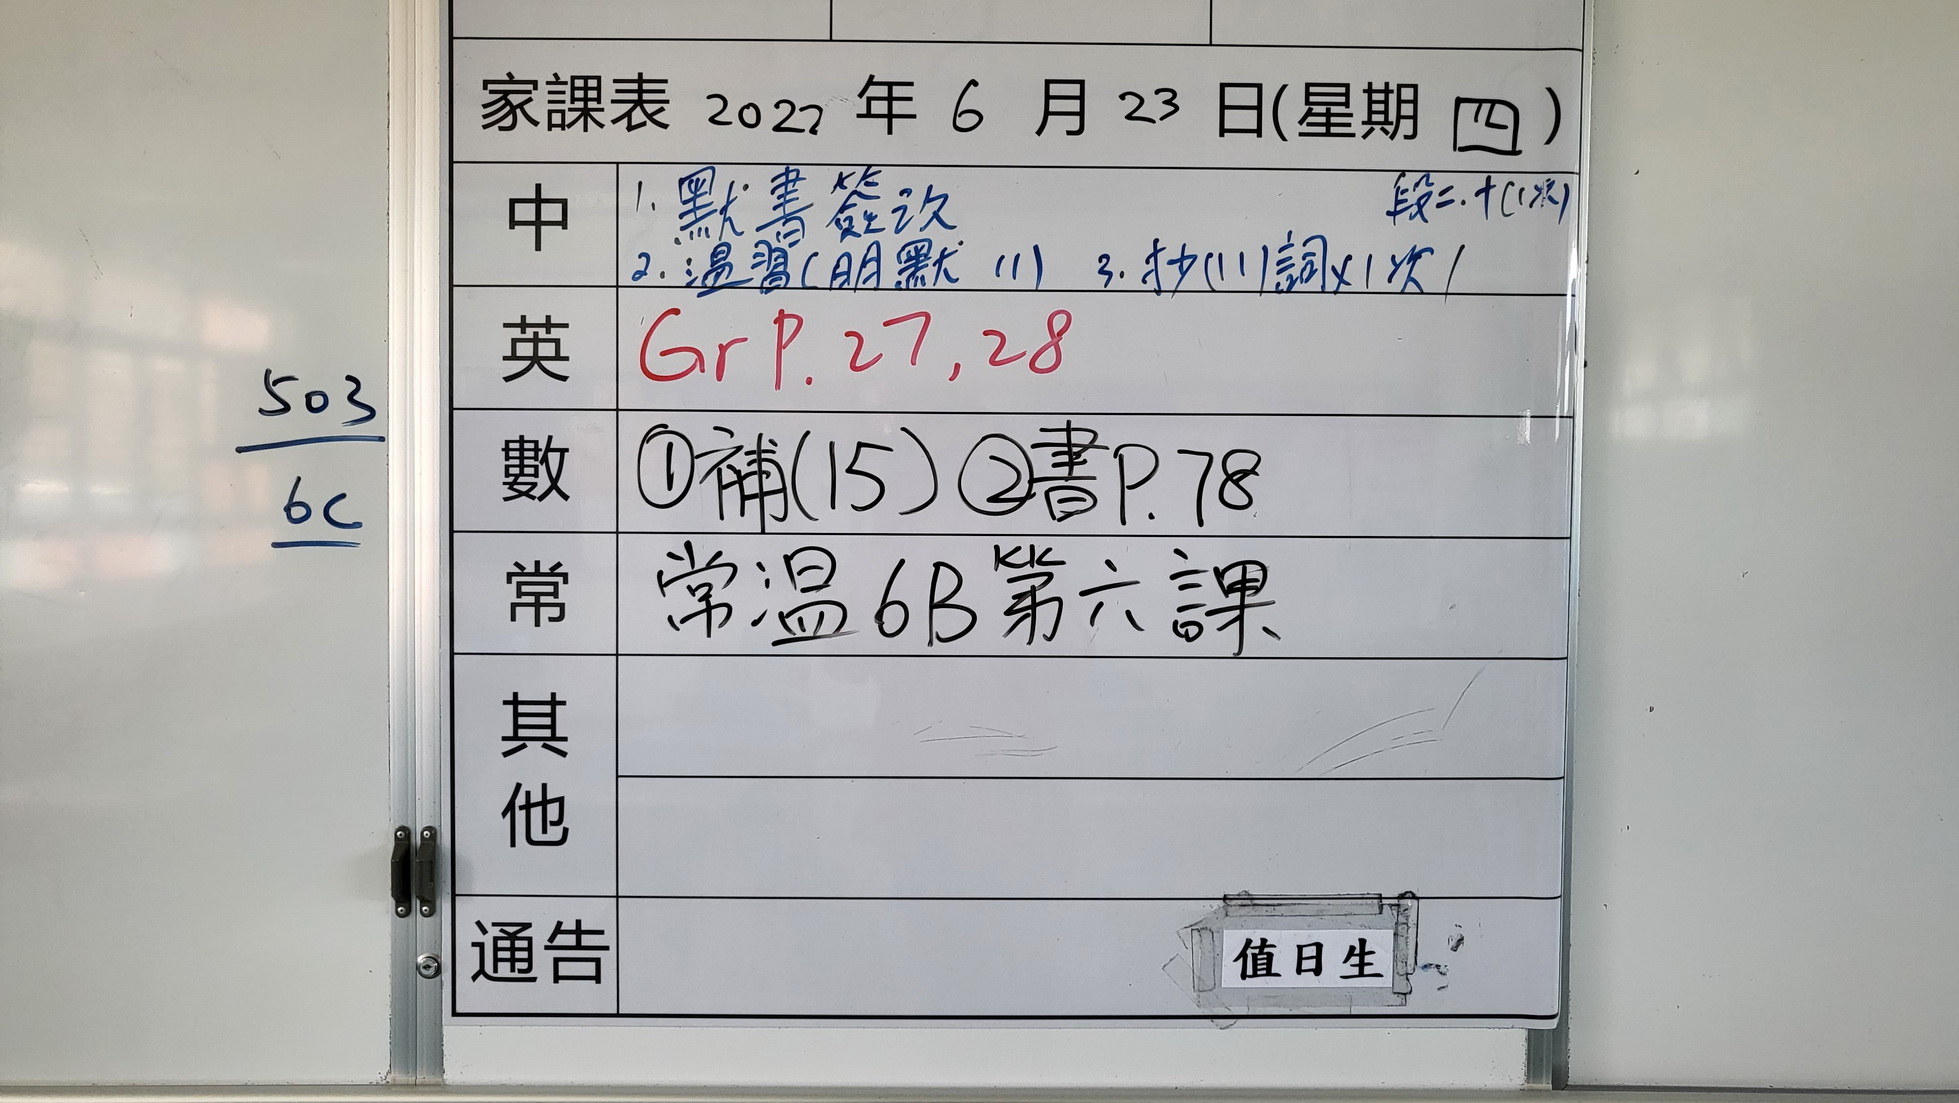 家課表 2022 年 6 月 23 日(星期 四)
中
1. 默書簽改
段二.十(1次)
2. 溫習(明默 11) 3. 抄(11)詞x1次/
英
Gr P. 27, 28
數
①補(15) ②書P.78
常
常溫6B第六課
其他
通告
值日生
503
6C